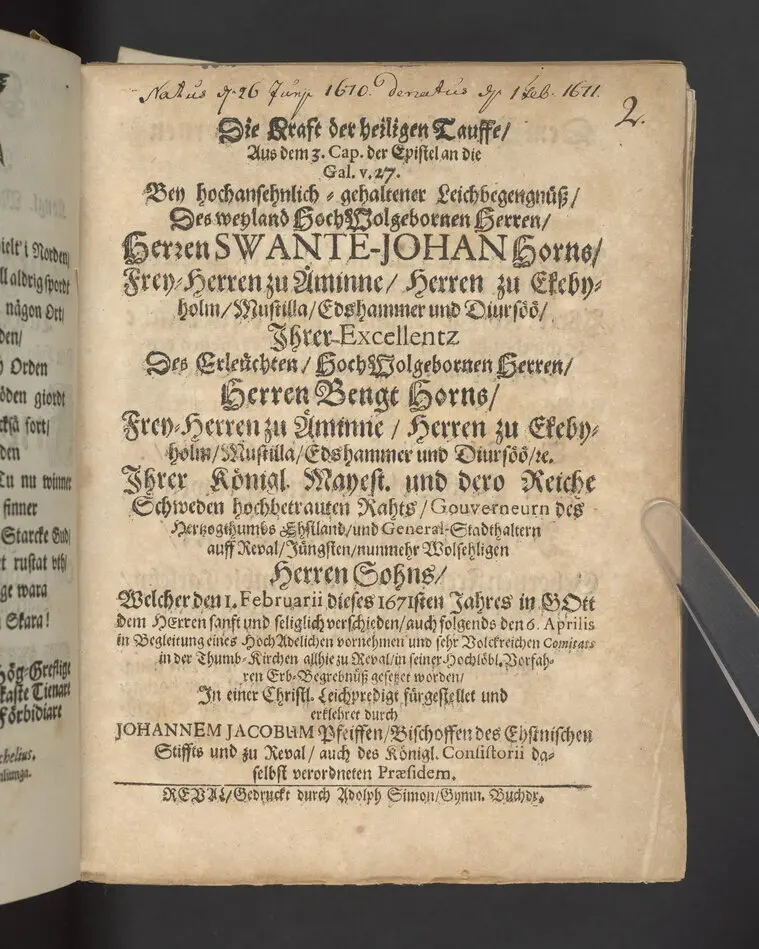 Natus d. 26 Junij 1670. denatus d. 1 Feb. 1671.
2.
Die Kraft der heiligen Tauffe/
Aus dem 3. Cap. der Epistel an die
Gal. v. 27.
Bey hochansehnlich-gehaltener Leichbegengnüß/
Des weyland HochWolgebornen Herren/
Herren SWANTE-JOHAN Horns/
Frey-Herren zu Åminne/ Herren zu Ekeby-
holm/Mustilla/Edshammer und Diursöö/
Ihrer Excellentz
Des Erleuchten/ HochWolgebornen Herren/
Herren Bengt Horns/
Frey-Herren zu Åminne/ Herren zu Ekeby-
holm/Mustilla/Edshammer und Diursöö/ꝛc.
Ihrer Königl. Mayest. und dero Reiche
Schweden hochbetrauten Rahts/Gouverneurn des
Hertzogthumbs Ehstland/und General-Stadthaltern
auff Reval/Jüngsten/nunmehr Wolsehligen
Herren Sohns/
Welcher den 1. Februarii dieses 1671sten Jahres in GOtt
dem HErren sanft und seliglich verschieden/auch folgends den 6. Aprilis
in Begleitung eines HochAdelichen vornehmen und sehr Volckreichen Comitats
in der Thumb-Kirchen allhie zu Reval/in seiner Hochlöbl. Vorfah-
ren Erb-Begrebnüß gesetzet worden/
In einer Christl. Leichpredigt fürgestellet und
erklehret durch
JOHANNEM JACOBUM Pfeiffen/Bischoffen des Ehstnischen
Stiffts und zu Reval/ auch des Königl. Consistorii da-
selbst verordneten Præsidem.
REVAL/Gedruckt durch Adolph Simon/Gymn. Buchdr.
ielt i Norden/
ll aldrig spordt
någon Ort/
den/
Orden
öden giordt
ckså fort/
den
Tu nu winner
finner
Starcke Gud/
t rustat uth/
ge wara
Skara!
Hög-Greflige
Tienare
Förbidiare